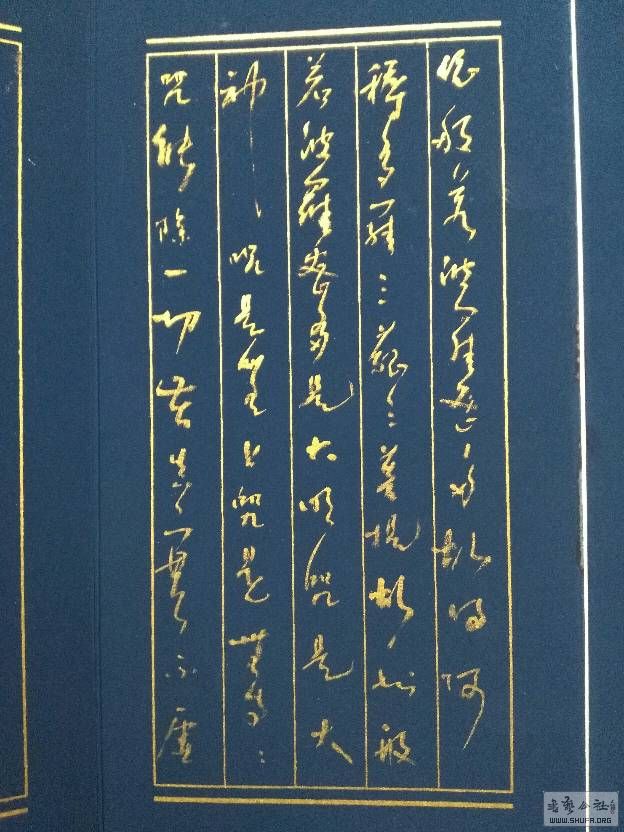 依般若波羅蜜多故得阿
耨多羅三藐三菩提故知般
若波羅蜜多是大明咒是大
神呪是無上咒是無等〻
咒能除一切苦真實不虛
书艺公社
WWW.SHUFA.ORG